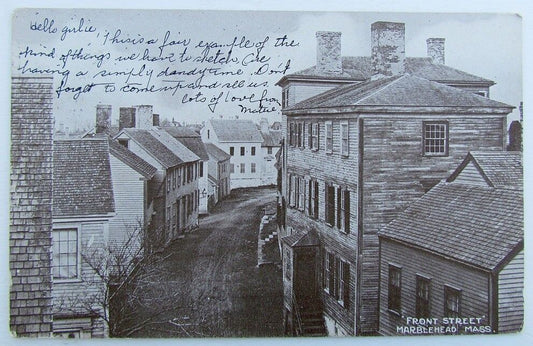 Hello girlie,
This is a fair example of the
kind of things we have to sketch. Are
having a simply dandy time. Don't
forget to come up and see us
lots of love from
FRONT STREET
MARBLEHEAD MASS.